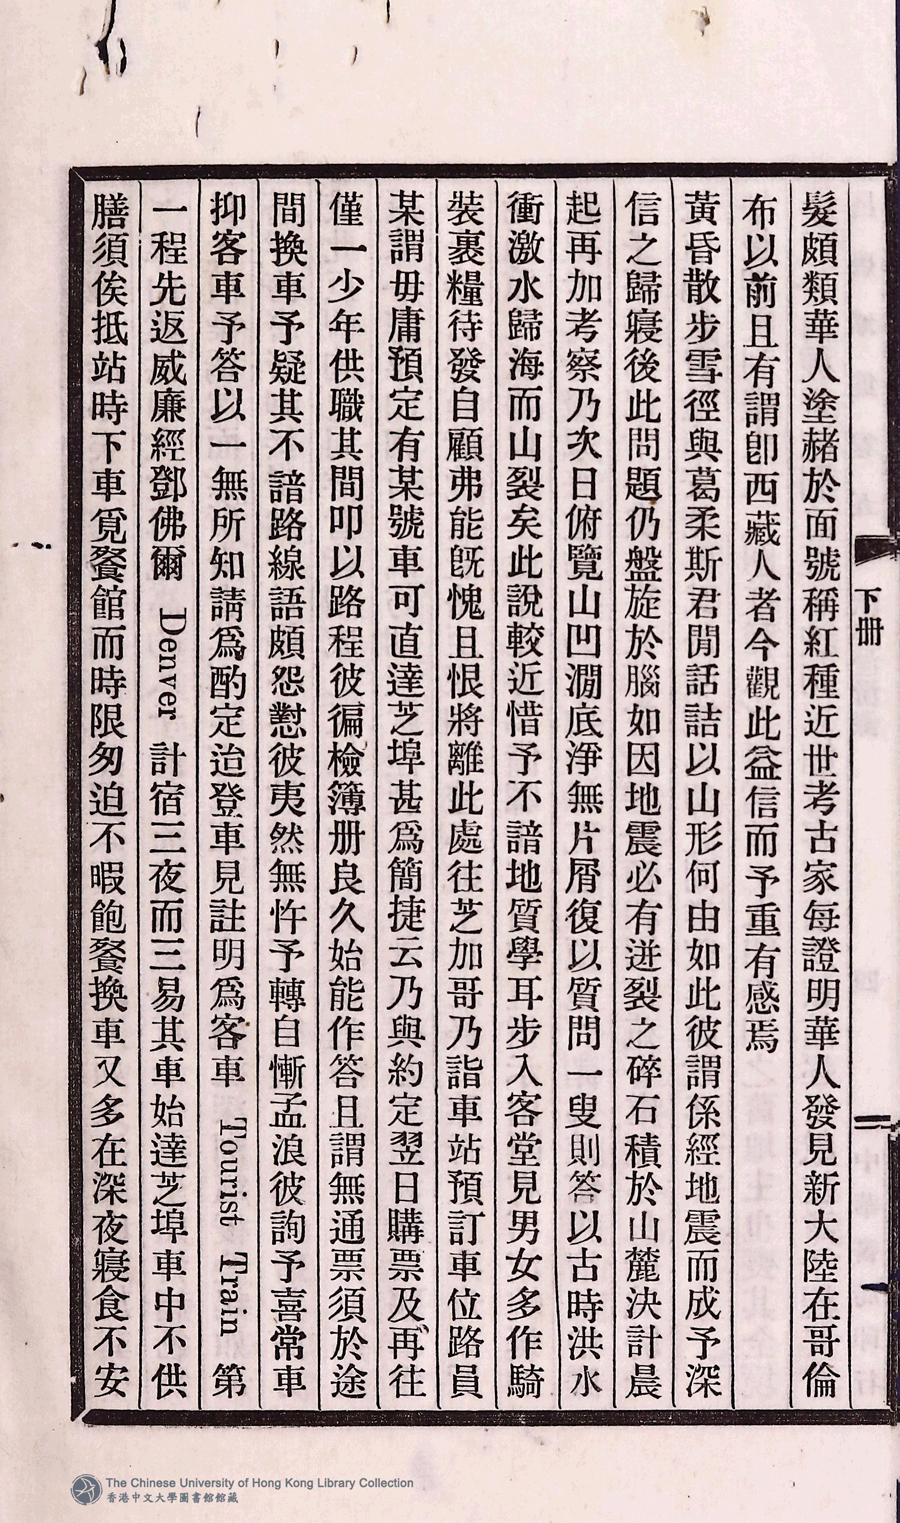 下册
髮頗類華人塗赭於面號稱紅種近世考古家每證明華人發見新大陸在哥倫
布以前且有謂卽西藏人者今觀此益信而予重有感焉
黃昏散步雪徑與葛柔斯君閒話詰以山形何由如此彼謂係經地震而成予深
信之歸寢後此問題仍盤旋於腦如因地震必有迸裂之碎石積於山麓決計晨
起再加考察乃次日俯覽山凹澗底淨無片屑復以質問一叟則答以古時洪水
衝激水歸海而山裂矣此說較近惜予不諳地質學耳步入客堂見男女多作騎
裝裹糧待發自顧弗能旣愧且恨將離此處往芝加哥乃詣車站預訂車位路員
某謂毋庸預定有某號車可直達芝埠甚爲簡捷云乃與約定翌日購票及再往
僅一少年供職其間叩以路程彼徧檢簿册良久始能作答且謂無通票須於途
間換車予疑其不諳路線語頗怨懟彼夷然無忤予轉自慚孟浪彼詢予喜常車
抑客車予答以一無所知請爲酌定迨登車見註明爲客車 Tourist Train 第
一程先返威廉經鄧佛爾 Denver 計宿三夜而三易其車始達芝埠車中不供
膳須俟抵站時下車覓餐館而時限匆迫不暇飽餐換車又多在深夜寢食不安
The Chinese University of Hong Kong Library Collection
香港中文大學圖書館館藏